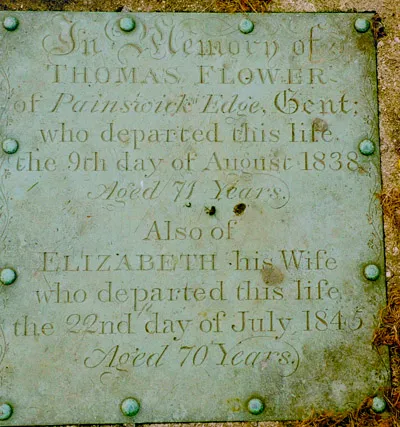 In Memory of
THOMAS FLOWER
of Painswick Edge, Gent:
who departed this life
the 9th day of August 1838
Aged 71 Years.
Also of
ELIZABETH his Wife
who departed this life
the 22nd day of July 1845
Aged 70 Years.